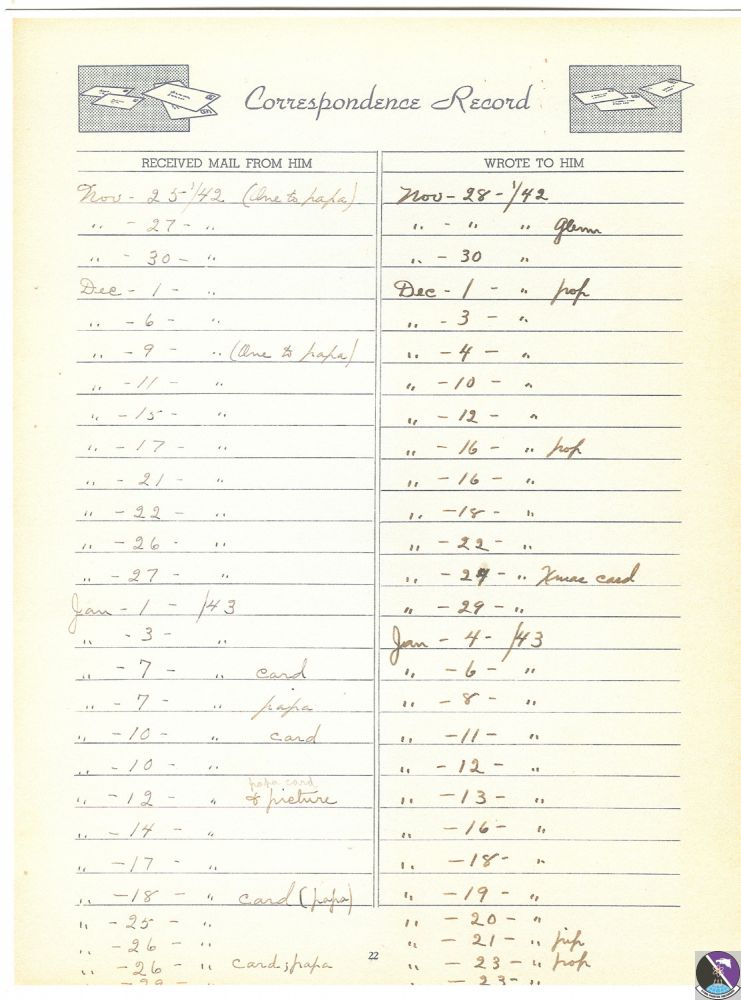 Correspondence Record
RECEIVED MAIL FROM HIM
Nov - 25 '/42 (One to papa)
" - 27 - "
" - 30 - "
Dec - 1 - "
" - 6 - "
" - 9 - " (One to papa)
" - 11 - "
" - 15 - "
" - 17 - "
" - 21 - "
" - 22 - "
" - 26 - "
" - 27 - "
Jan - 1 - /43
" - 3 - "
" - 7 - " card
" - 7 - " papa
" - 10 - " card
" - 10 - "
papa card
" - 12 - " & picture
" - 14 - "
" - 17 - "
" - 18 - " card (papa)
" - 25 - "
" - 26 - "
" - 26 - " card; papa
WROTE TO HIM
Nov - 28 - '/42
" - " " Glenn
" - 30 "
Dec - 1 - " pop
" - 3 - "
" - 4 - "
" - 10 - "
" - 12 - "
" - 16 - " pop
" - 16 - "
" - 18 - "
" - 22 - "
" - 27 - " Xmas card
" - 29 - "
Jan - 4 - /43
" - 6 - "
" - 8 - "
" - 11 - "
" - 12 - "
" - 13 - "
" - 16 - "
" - 18 - "
" - 19 - "
" - 20 - "
" - 21 - " pop
" - 23 - " pop
" - 23 - "
22